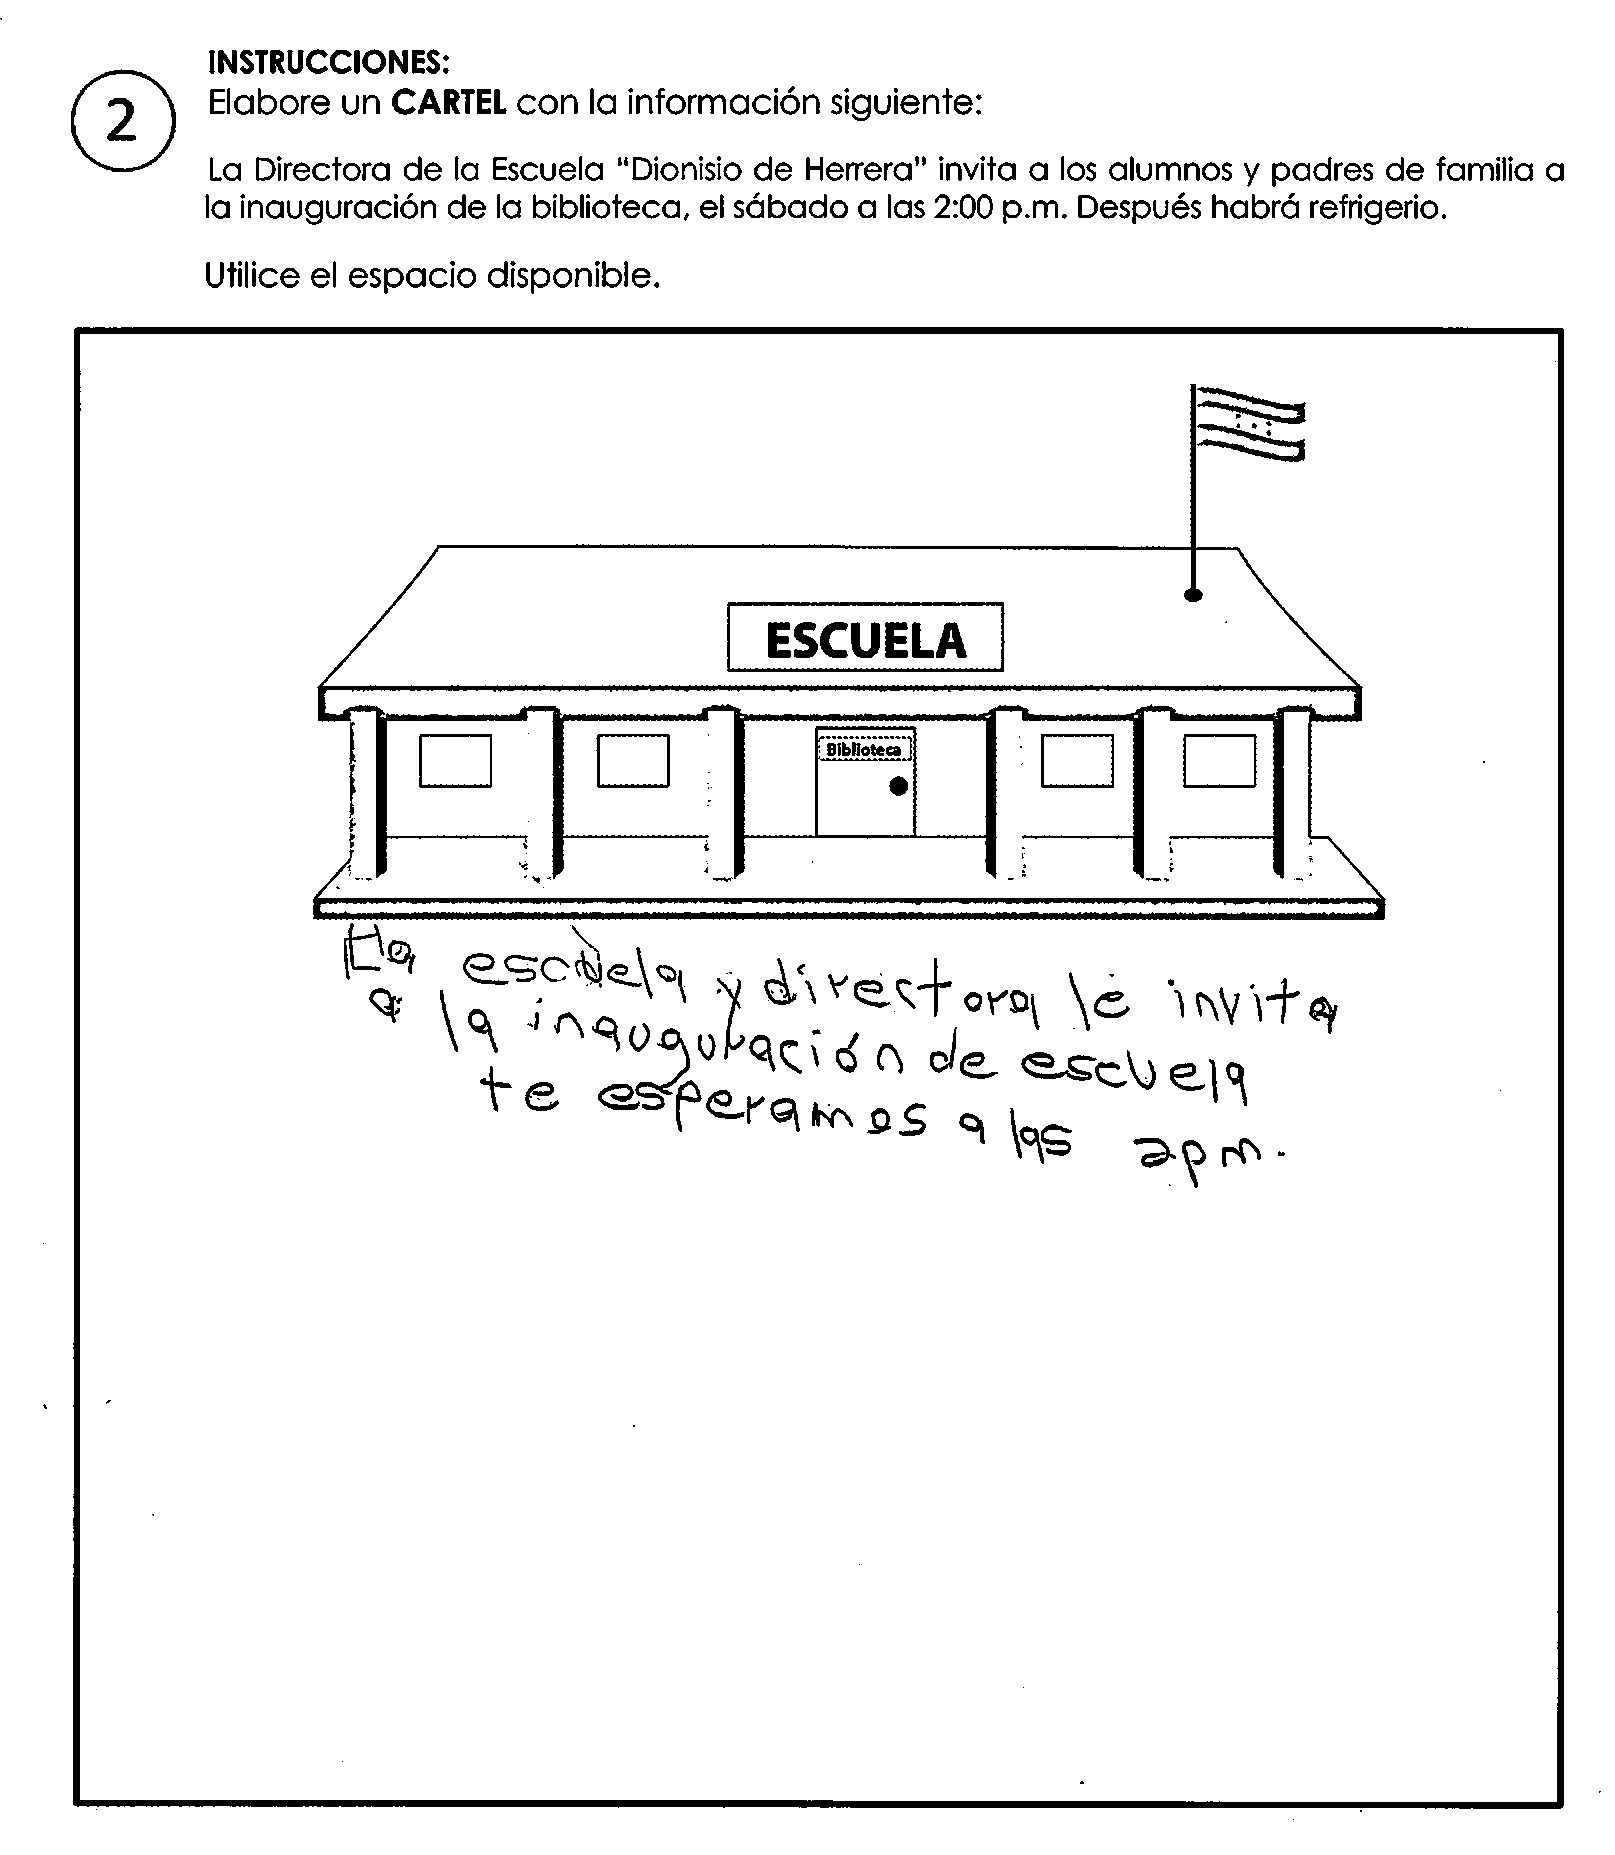 INSTRUCCIONES:
2
Elabore un CARTEL con la información siguiente:
La Directora de la Escuela "Dionisio de Herrera" invita a los alumnos y padres de familia a
la inauguración de la biblioteca, el sábado a las 2:00 p.m. Después habrá refrigerio.
Utilice el espacio disponible.
ESCUELA
Biblioteca
La escuela y directora le invita
a la inauguración de escuela
te esperamos a las 2pm.